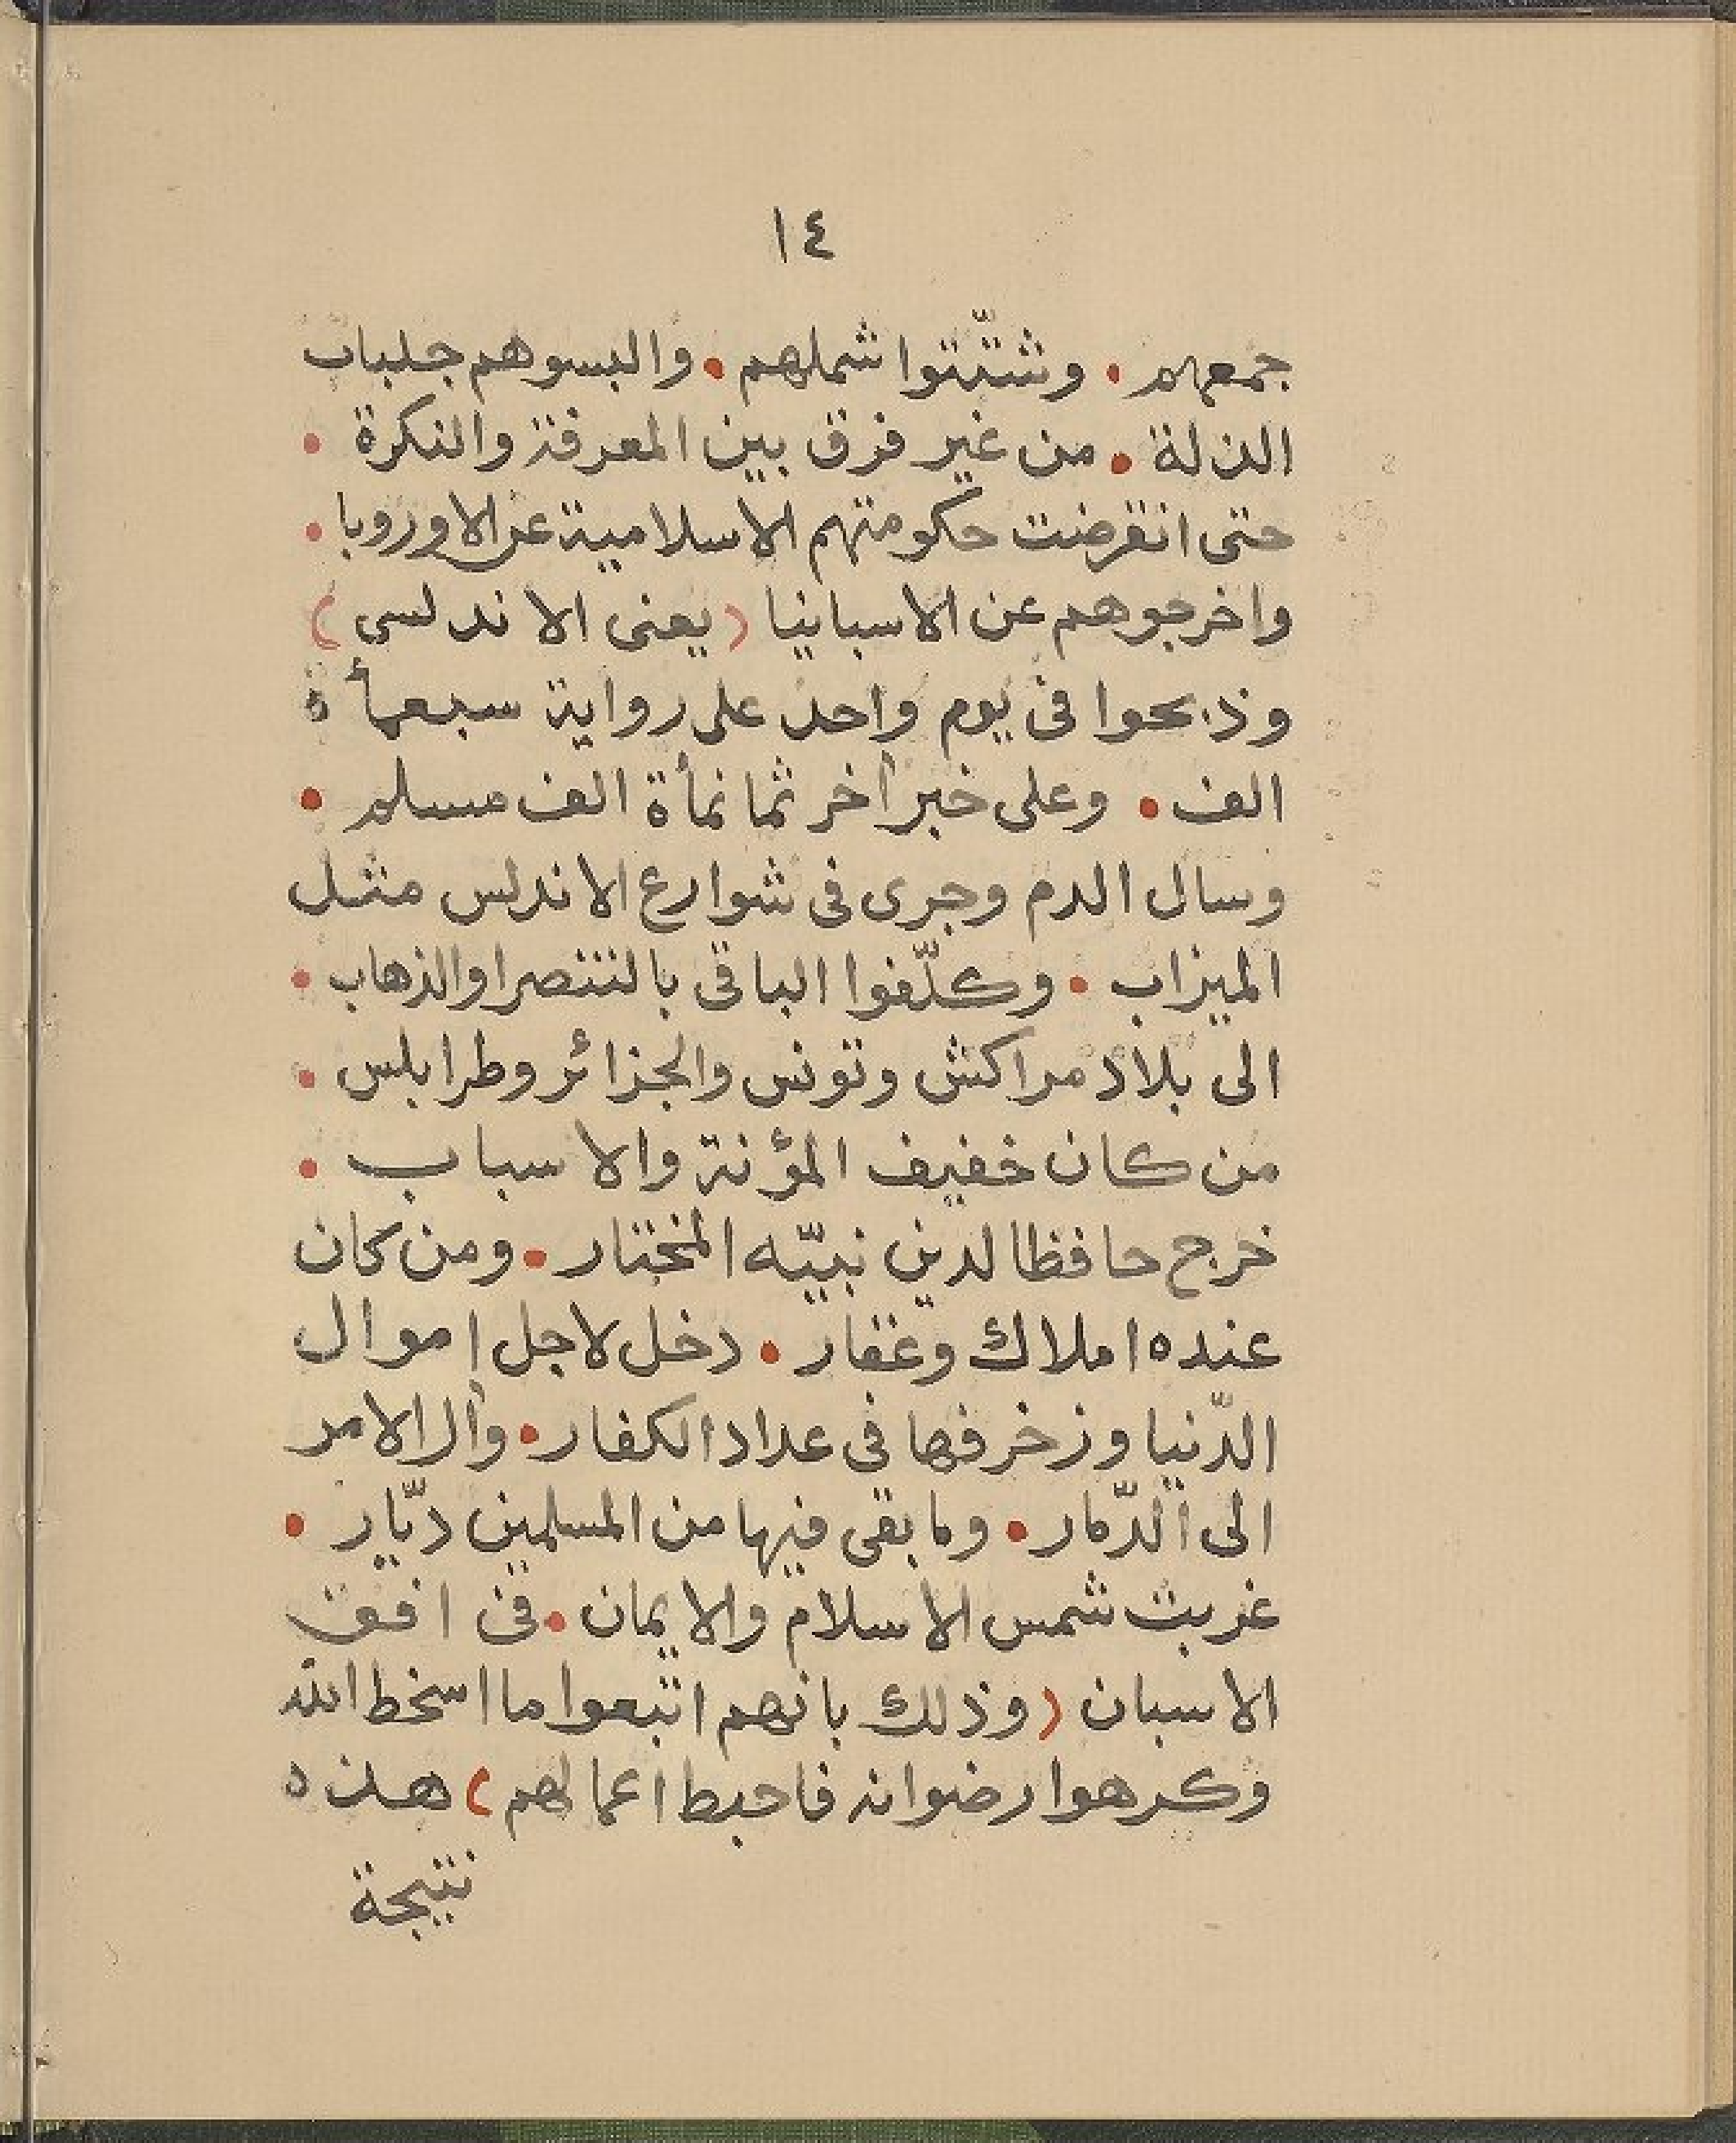 ١٤
جمعهم • وشتّتوا شملهم • والبسوهم جلباب
الذلة • من غير فرق بين المعرفة والنكرة •
حتى انقرضت حكومتهم الاسلامية عن الاوروبا •
واخرجوهم عن الاسبانيا (يعنى الاندلسى)
وذبحوا فى يوم واحد على رواية سبعمأة
الف • وعلى خبر آخر ثمانمأة الف مسلم •
وسال الدم وجرى فى شوارع الاندلس مثل
الميزاب • وكلّفوا الباقى بالتنصر او الذهاب •
الى بلاد مراكش وتونس والجزائر وطرابلس •
من كان خفيف المؤنة والاسباب •
خرج حافظا لدين نبيّه المختار • ومن كان
عنده املاك وعقار • دخل لاجل اموال
الدّنيا وزخرفها فى عداد الكفار • وآل الامر
الى الدّمار • وما بقى فيها من المسلمين ديّار •
غربت شمس الاسلام والايمان • فى افق
الاسبان (وذلك بانهم اتبعوا ما اسخط الله
وكرهوا رضوانه فاحبط اعمالهم) هذه
نتيجة